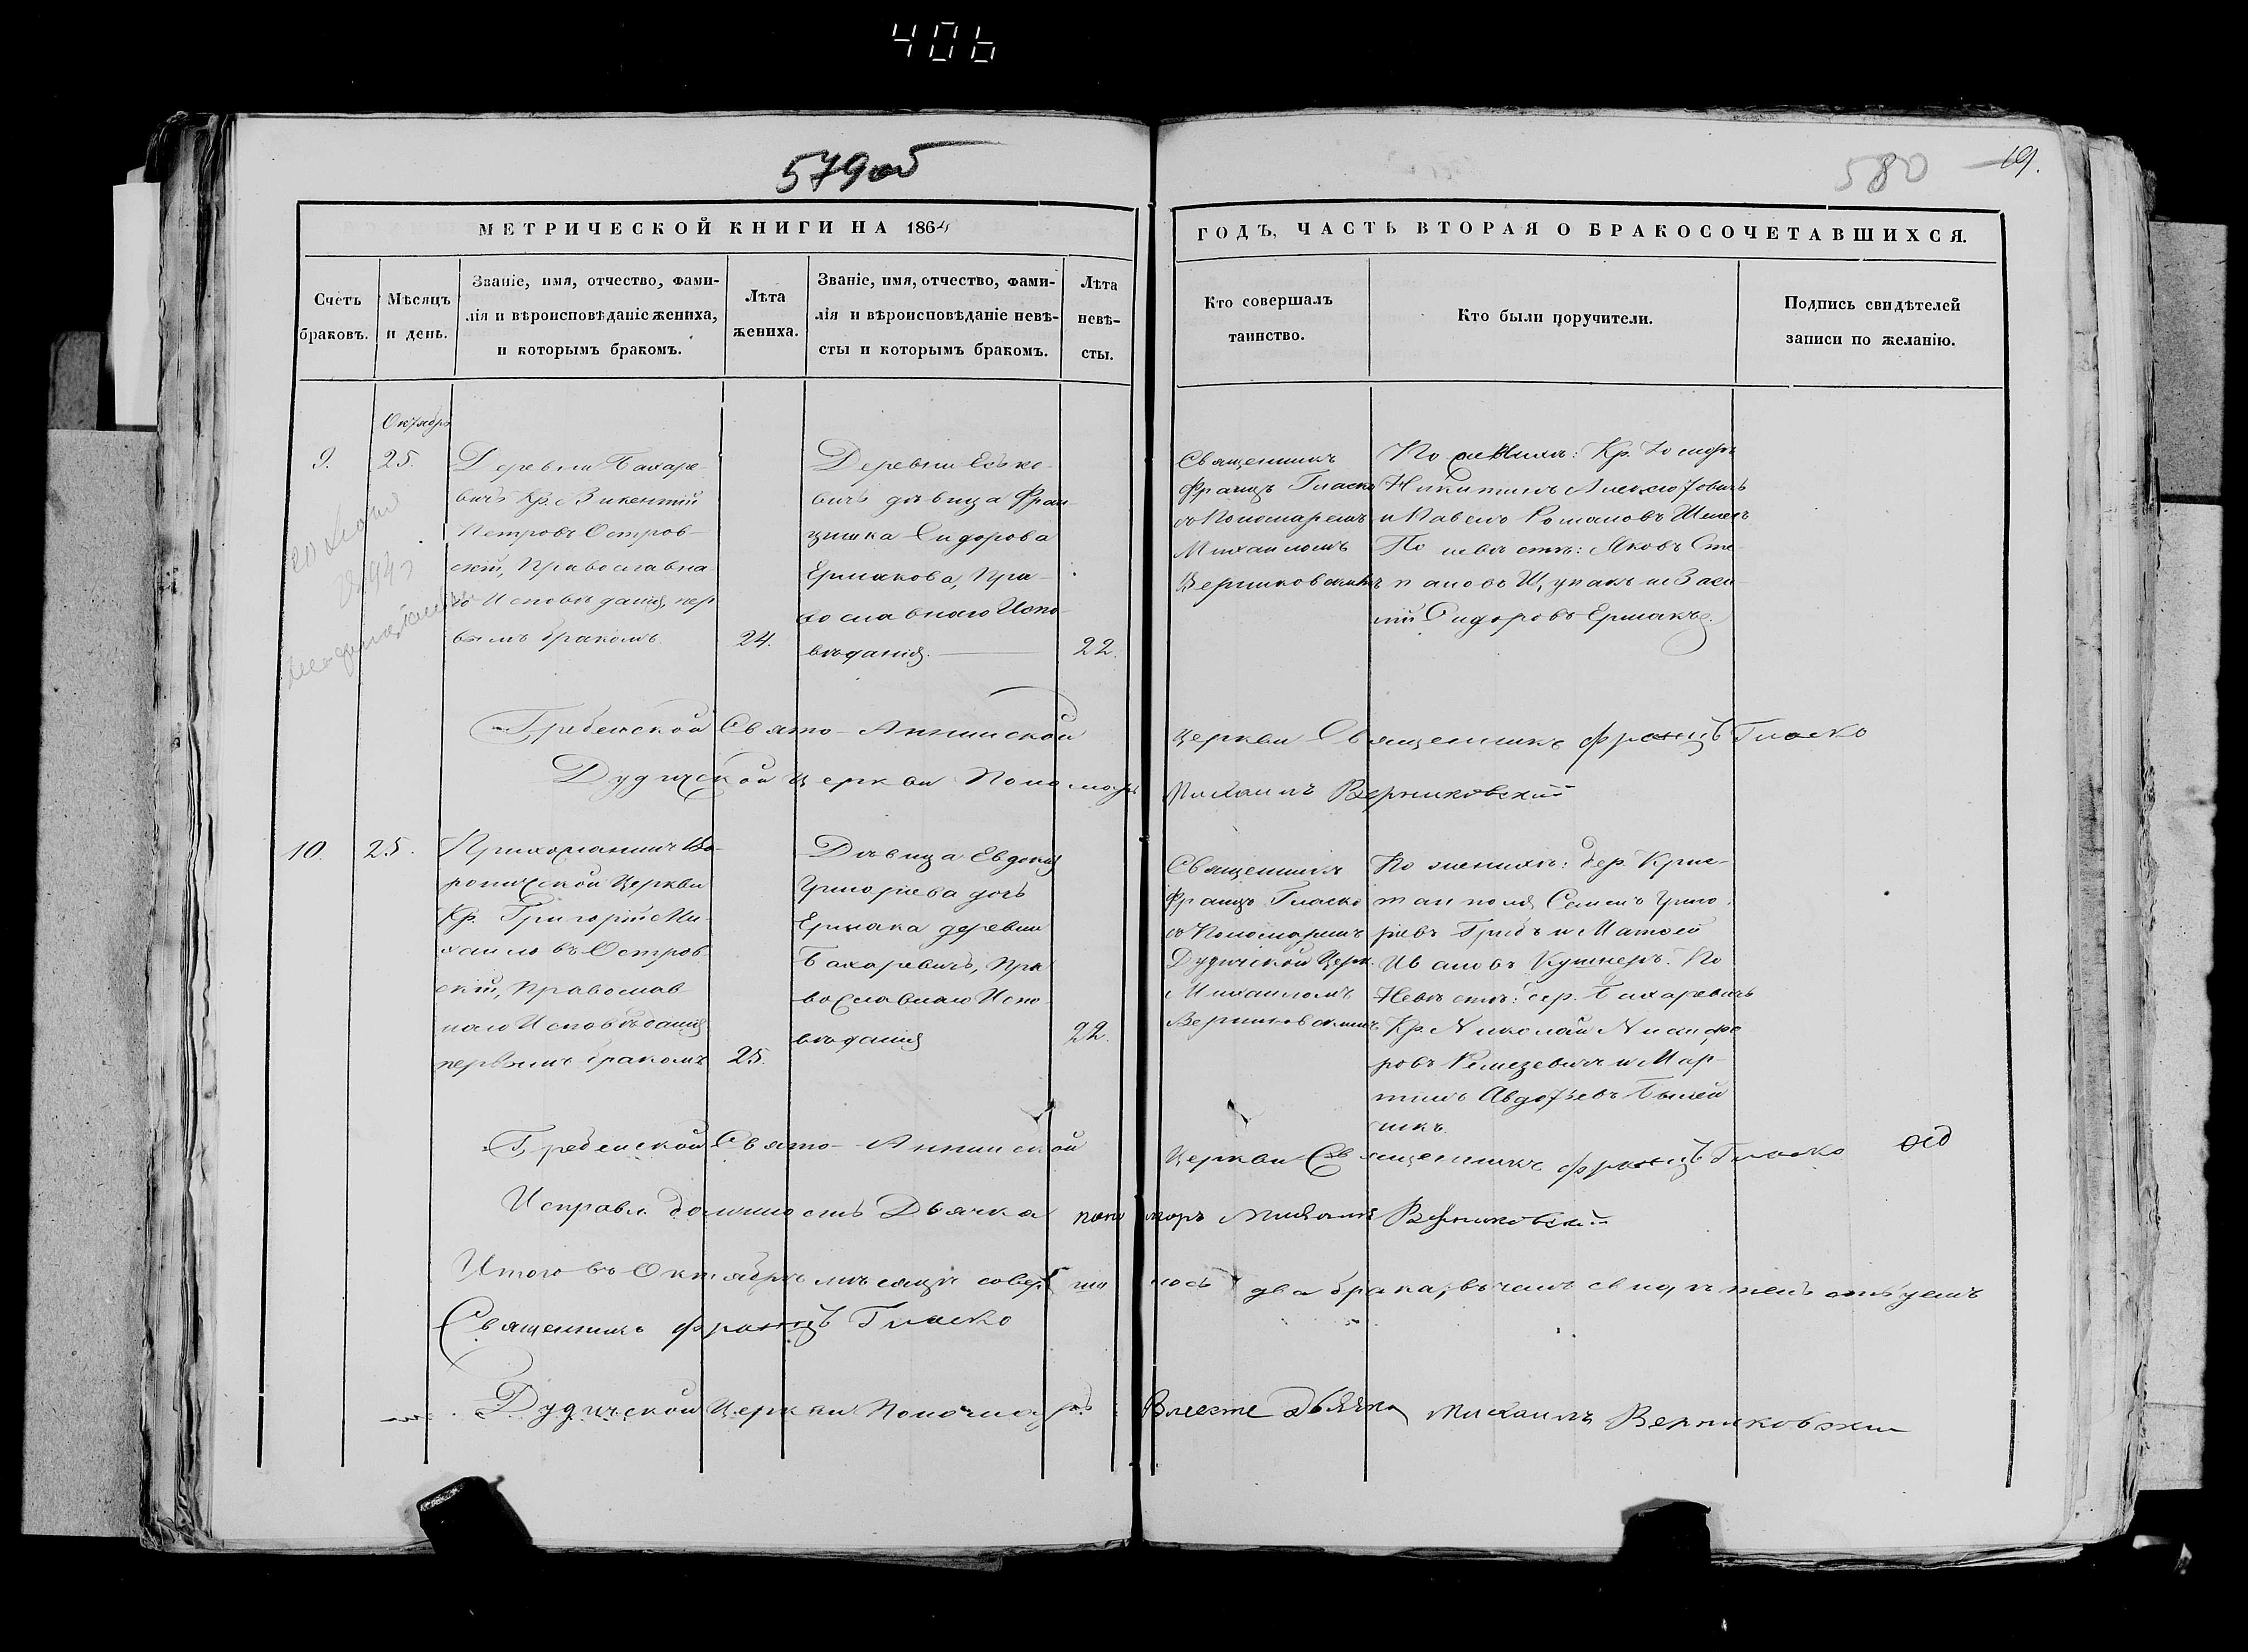 406
579 об
580
19.
МЕТРИЧЕСКОЙ КНИГИ НА 1864
ГОДЪ, ЧАСТЬ ВТОРАЯ О БРАКОСОЧЕТАВШИХСЯ.
Счетъ
браковъ.
Мѣсяцъ
и день.
Званіе, имя, отчество, фами-
лія и вѣроисповѣданіе жениха,
и которымъ бракомъ.
Лѣта
жениха.
Званіе, имя, отчество, фами-
лія и вѣроисповѣданіе невѣ-
сты и которымъ бракомъ.
Лѣта
невѣ-
сты.
Кто совершалъ
таинство.
Кто были поручители.
Подпись свидѣтелей
записи по желанію.
Октябрь
9.
25.
Деревни Бахаре-
вичъ Кр. Викентій
Петровъ Остров-
скій, Православна-
го Исповѣданія, пер
вымъ бракомъ.
24.
Деревни
вичъ дѣвица Фран-
цишка Сидорова
Ермакова, Пра-
вославнаго Испо-
вѣданія.
22.
Священникъ
Францъ Гласко
съ Пономаремъ
Михаиломъ
Верниковскимъ
По женихѣ: Кр. Іосифъ
Никитинъ
и Павелъ Романовъ
По невѣстѣ: Яковъ Сте-
пановъ Щупакъ и Васи-
лій Сидоровъ Ермакъ.
Гребенской Свято-Аннинской
Церкви Священникъ Францъ Гласко
Дудичской Церкви Пономарь
Михаилъ Верниковскій
10.
25.
Прихожанинъ Во-
роничской Церкви
Кр. Григорій Ми-
хаиловъ Остров-
скій, Православ
наго Исповѣданія
первымъ бракомъ
25.
Дѣвица Евдокія
Григорьева дочь
Ермака деревни
Бахаревичъ, Пра
вославнаго Испо
вѣданія
22.
Священникъ
Францъ Гласко
съ Пономаремъ
Дудичской Церк.
Михаиломъ
Верниковскимъ
По женихѣ: дер. Крис-
танполя Семенъ Григо
рьевъ Грибъ и Матѳей
Ивановъ Кушнеръ. По
Невѣстѣ: дер. Бахаревичъ
Кр. Николай Никифо
ровъ Ремезевичъ и Мар-
тинъ Авдѣевъ
никъ.
Гребенской Свято-Аннинской
Церкви Священникъ Францъ Гласко
Исправл. должность Дьячка
пономарь Михаилъ Верниковскій
Итого въ Октябрѣ мѣсяцѣ соверши
лось два брака, въ чемъ свидѣтельствуемъ
Священникъ Францъ Гласко
Дудичской Церкви Пономарь
Вместе дьячка Михаилъ Верниковскій